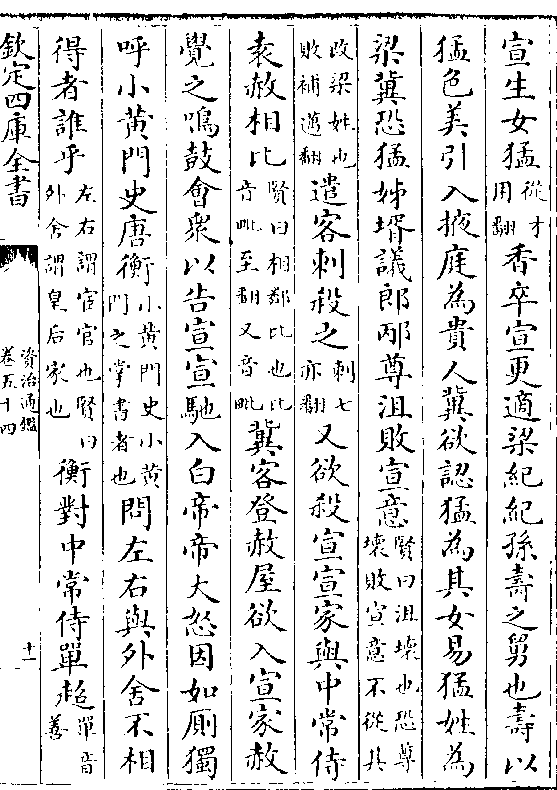 宣生女猛從才用翻香卒宣更適梁紀紀孫壽之舅也壽以
猛色美引入掖庭為貴人冀欲認猛為其女易猛姓為
梁冀恐猛姊壻議郎邴尊沮敗宣意賢曰沮壞也恐尊壞敗宣意不從其
改梁姓也敗補邁翻遣客刺殺之刺七亦翻又欲殺宣宣家與中常侍
袁赦相比賢曰相鄰比也比音毗至翻又音毗冀客登赦屋欲入宣家赦
覺之鳴鼓會衆以告宣宣馳入白帝帝大怒因如厠獨
呼小黄門史唐衡小黄門史小黄門之掌書者也問左右與外舍不相
得者誰乎左右謂宦官也賢曰外舍謂皇后家也衡對中常侍單超單音善
欽定四庫全書
資治通鑑
卷五十四
十一